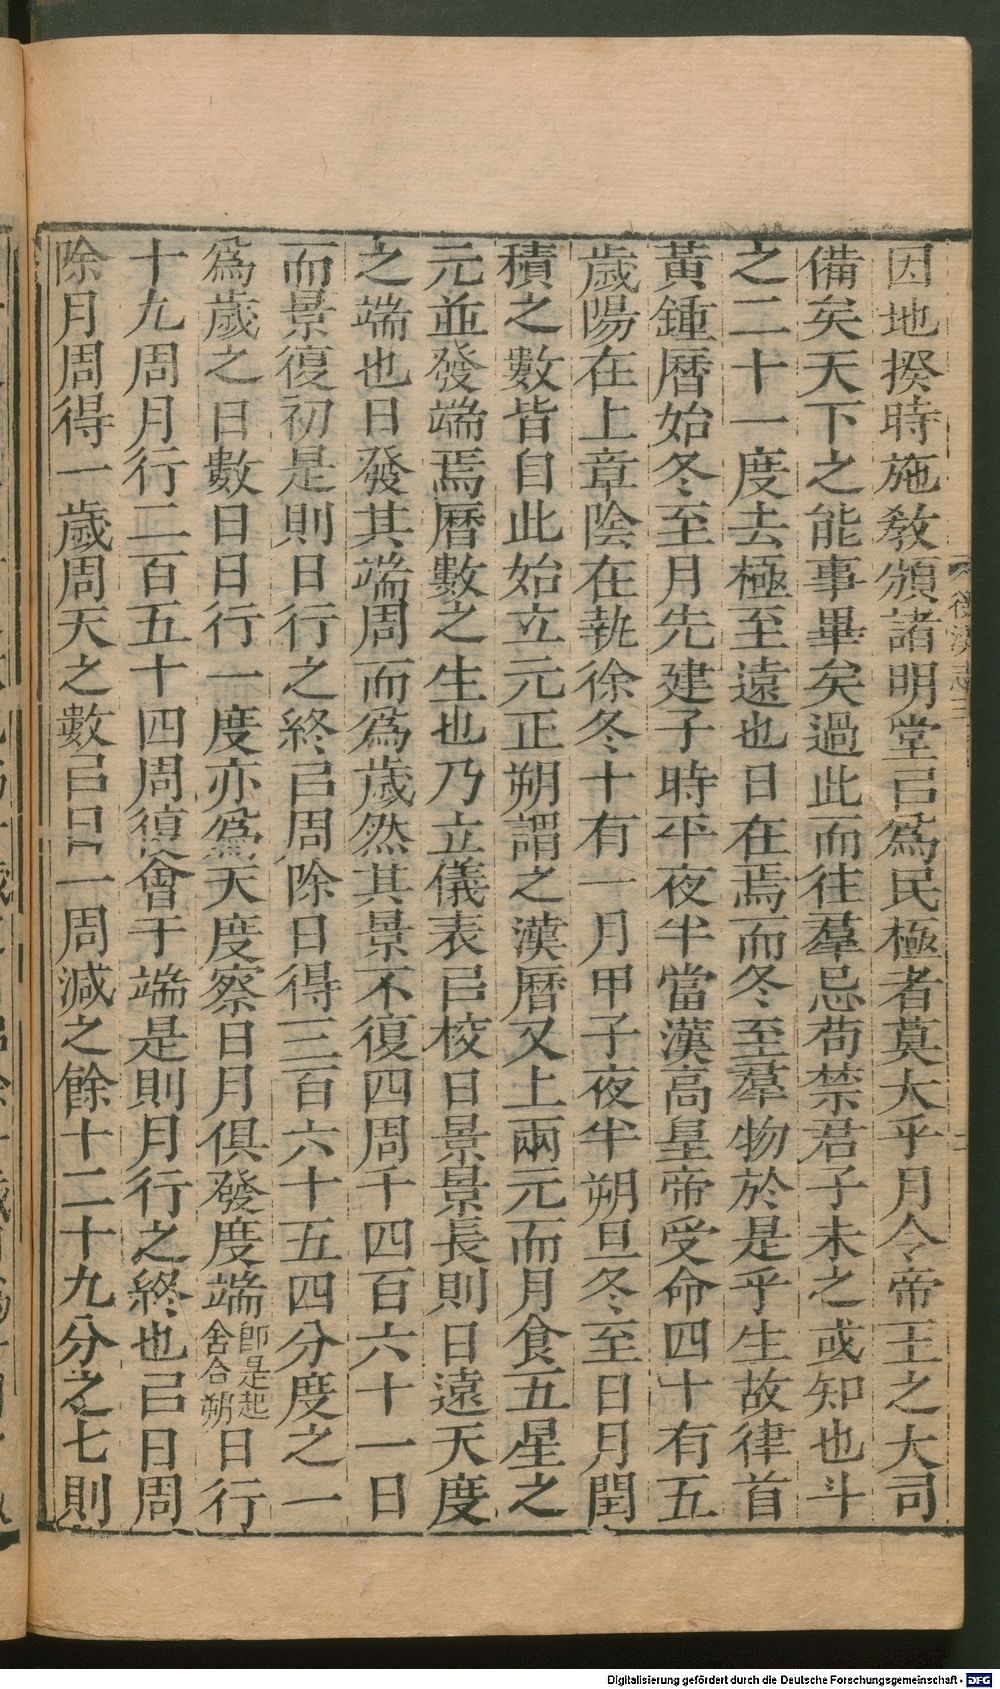 因地揆時施敎頒諸明堂㠯爲民極者莫大乎月令帝王之大司
備矣天下之能事畢矣過此而往羣忌苟禁君子未之或知也斗
之二十一度去極至遠也日在焉而冬至羣物於是乎生故律首
黃鍾曆始冬至月先建子時平夜半當漢高皇帝受命四十有五
歲陽在上章陰在執徐冬十有一月甲子夜半朔旦冬至日月閏
積之數皆自此始立元正朔謂之漢曆又上兩元而月食五星之
元並發端焉曆數之生也乃立儀表㠯校日景景長則日遠天度
之端也日發其端周而爲歲然其景不復四周千四百六十一日
而景復初是則日行之終㠯周除日得三百六十五四分度之一
爲歲之日數日日行一度亦爲天度察日月俱發度端卽是起舍合朔日行
十九周月行二百五十四周復會于端是則月行之終也㠯日周
除月周得一歲周天之數㠯日一周減之餘十二十九分之七則
後漢志三
Digitalisierung gefördert durch die Deutsche Forschungsgemeinschaft - DFG